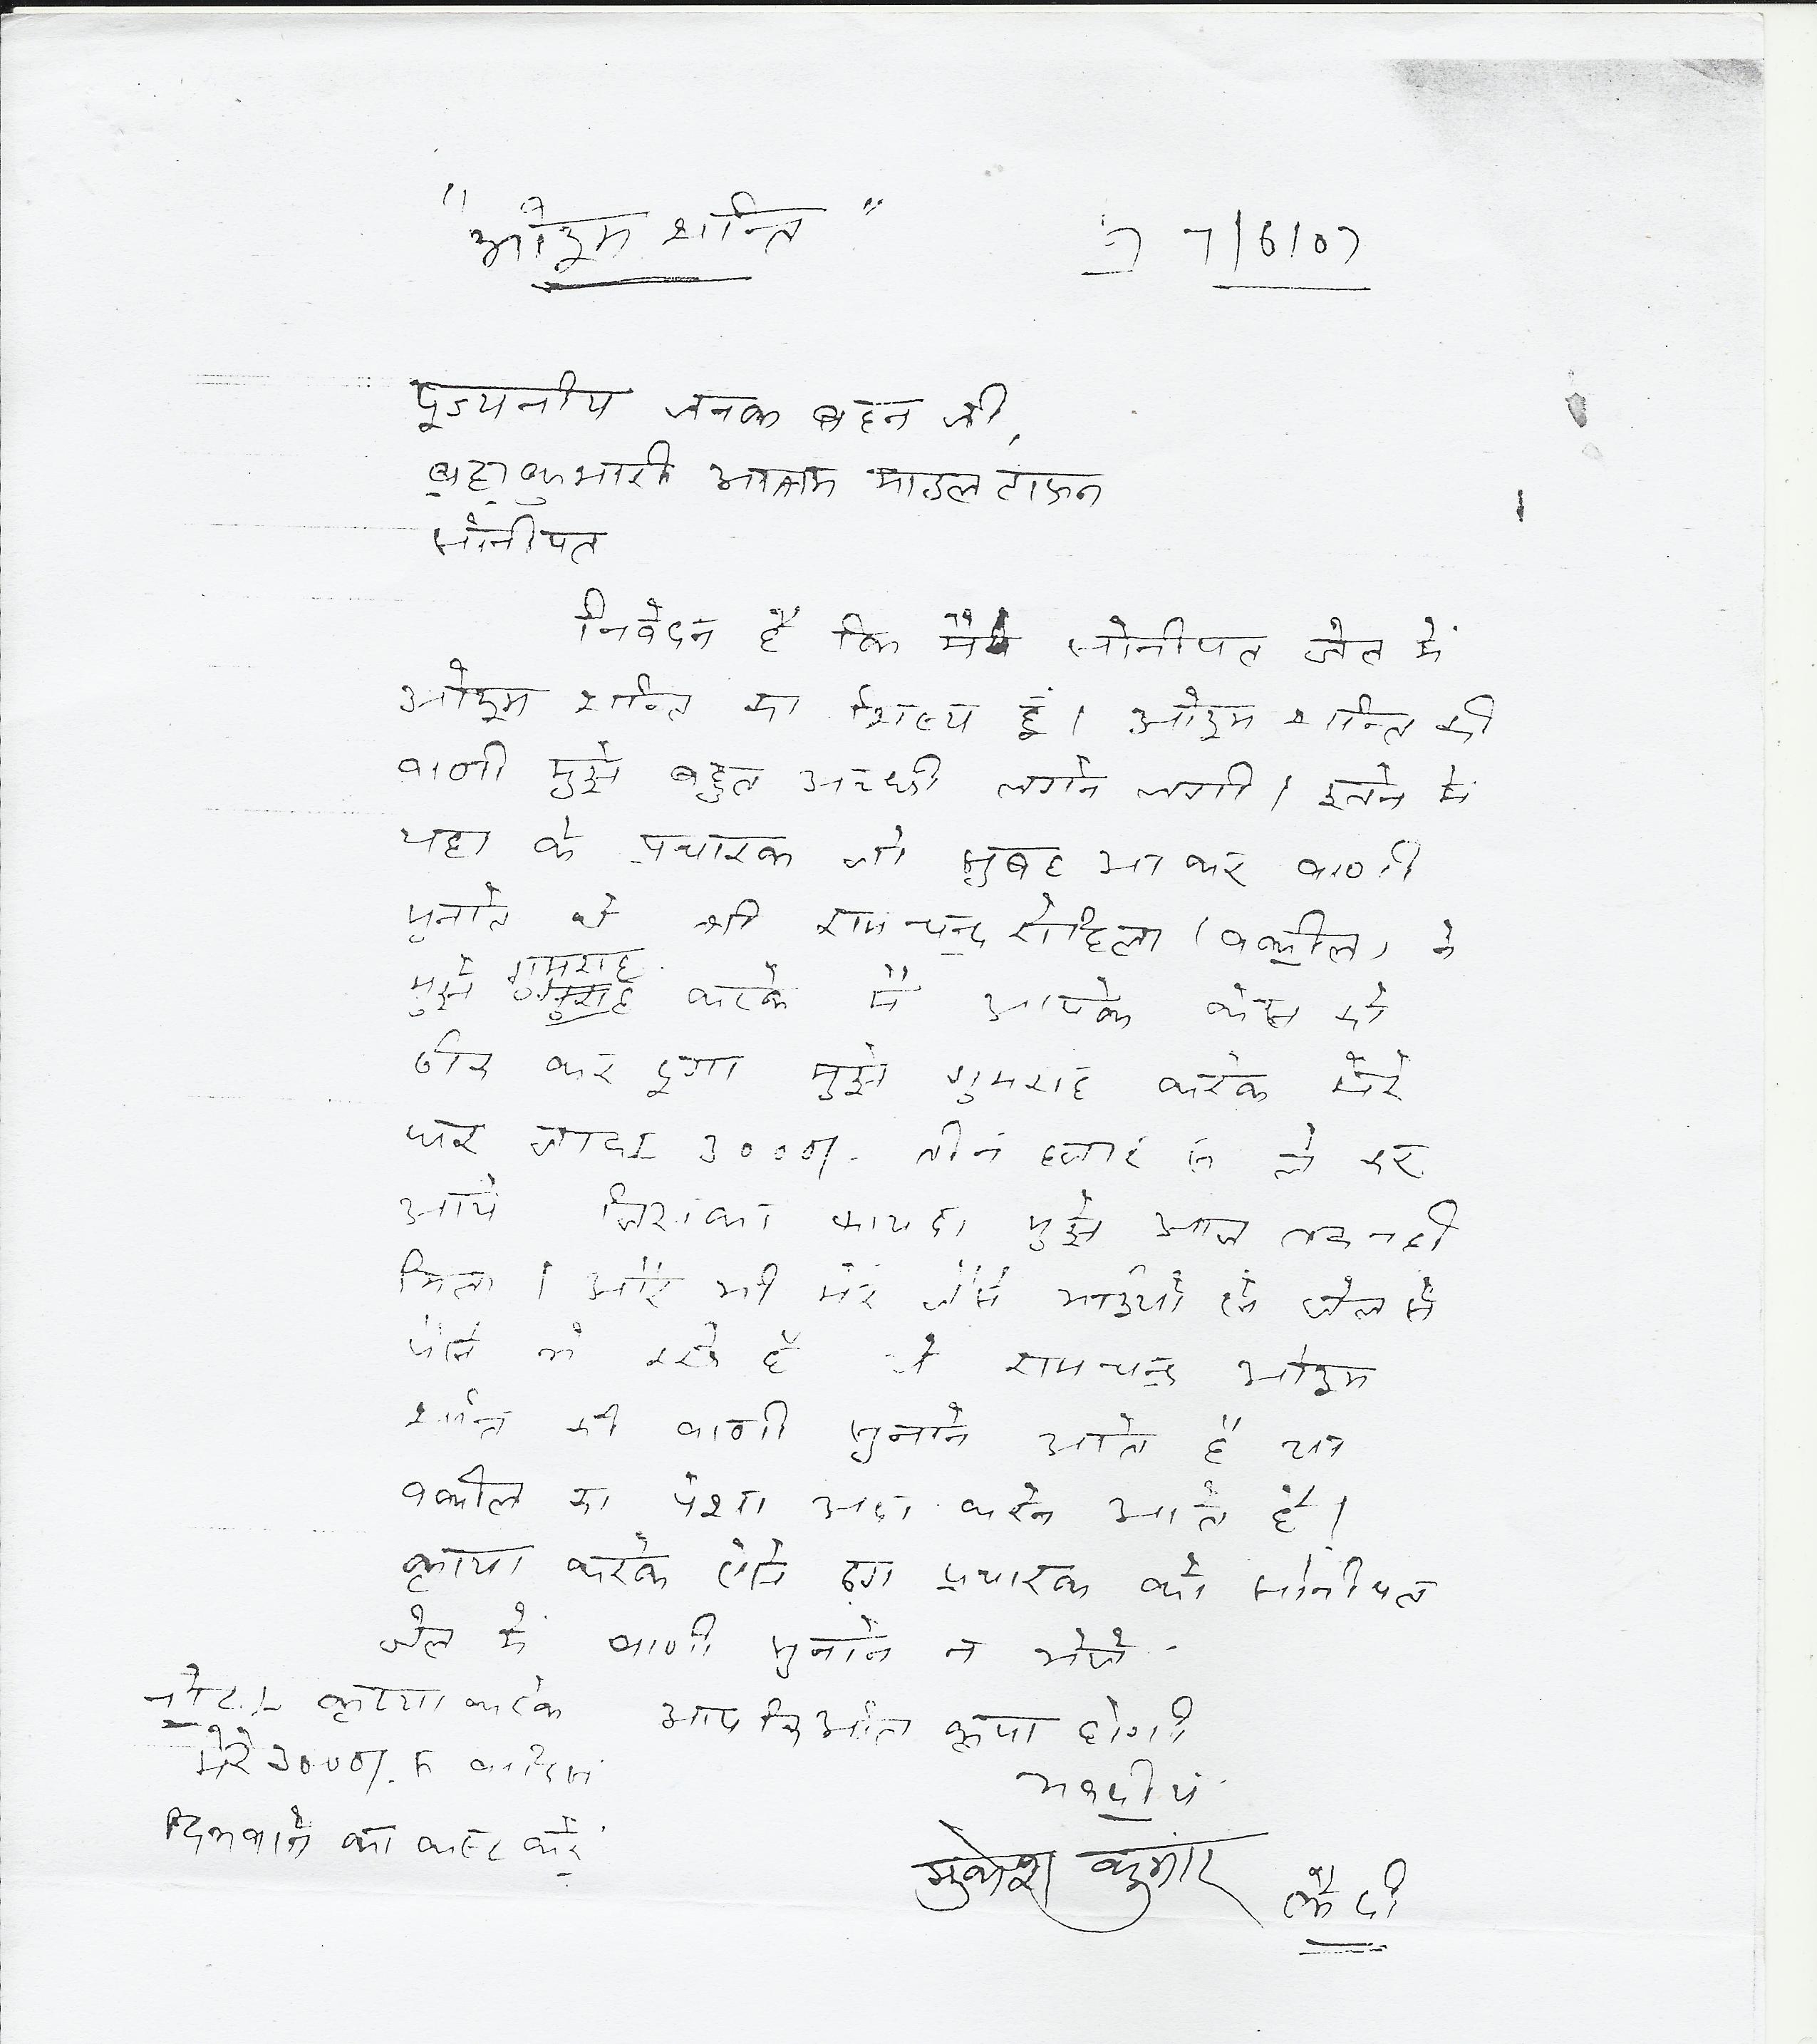 "ओ३म शान्ति"
7/6/07
पूज्यनीय जनक बहन जी,
ब्रह्माकुमारी आश्रम माडल टाऊन
सोनीपत
निवेदन है कि मैं सोनीपत जेल में
ओ३म शान्ति का शिष्य हूं। ओ३म शान्ति की
वाणी मुझे बहुत अच्छी लगने लगी। इतने में
यहा के प्रचारक जो सुबह आकर वाणी
सुनाते थे श्री रामचन्द्र रोहिला (वकील) ने
मुझे गुमराह करके मैं आपके केस को
ठीक कर दूगा मुझे गुमराह करके मेरे
घर जाकर 3000/- तीन हजार रू ले कर
आये जिसका फायदा मुझे आज तक नही
मिला। और भी मेरे जैसे भाईयो से जेल से
पैसे ले रखे है ये रामचन्द्र ओ३म
शान्ति की वाणी सुनाने आते हैं या
वकील का पेशा अदा करने आते हैं।
कृपया करके ऐसे ठग प्रचारक को सोनीपत
जेल में वाणी सुनाने न भेजे
आपकि अति कृपा होगी
नोट:- कृपया करके
मेरे 3000/- रू वापिस
दिलवाने का कष्ट करें
भवदीय
मुकेश कुमार कैदी